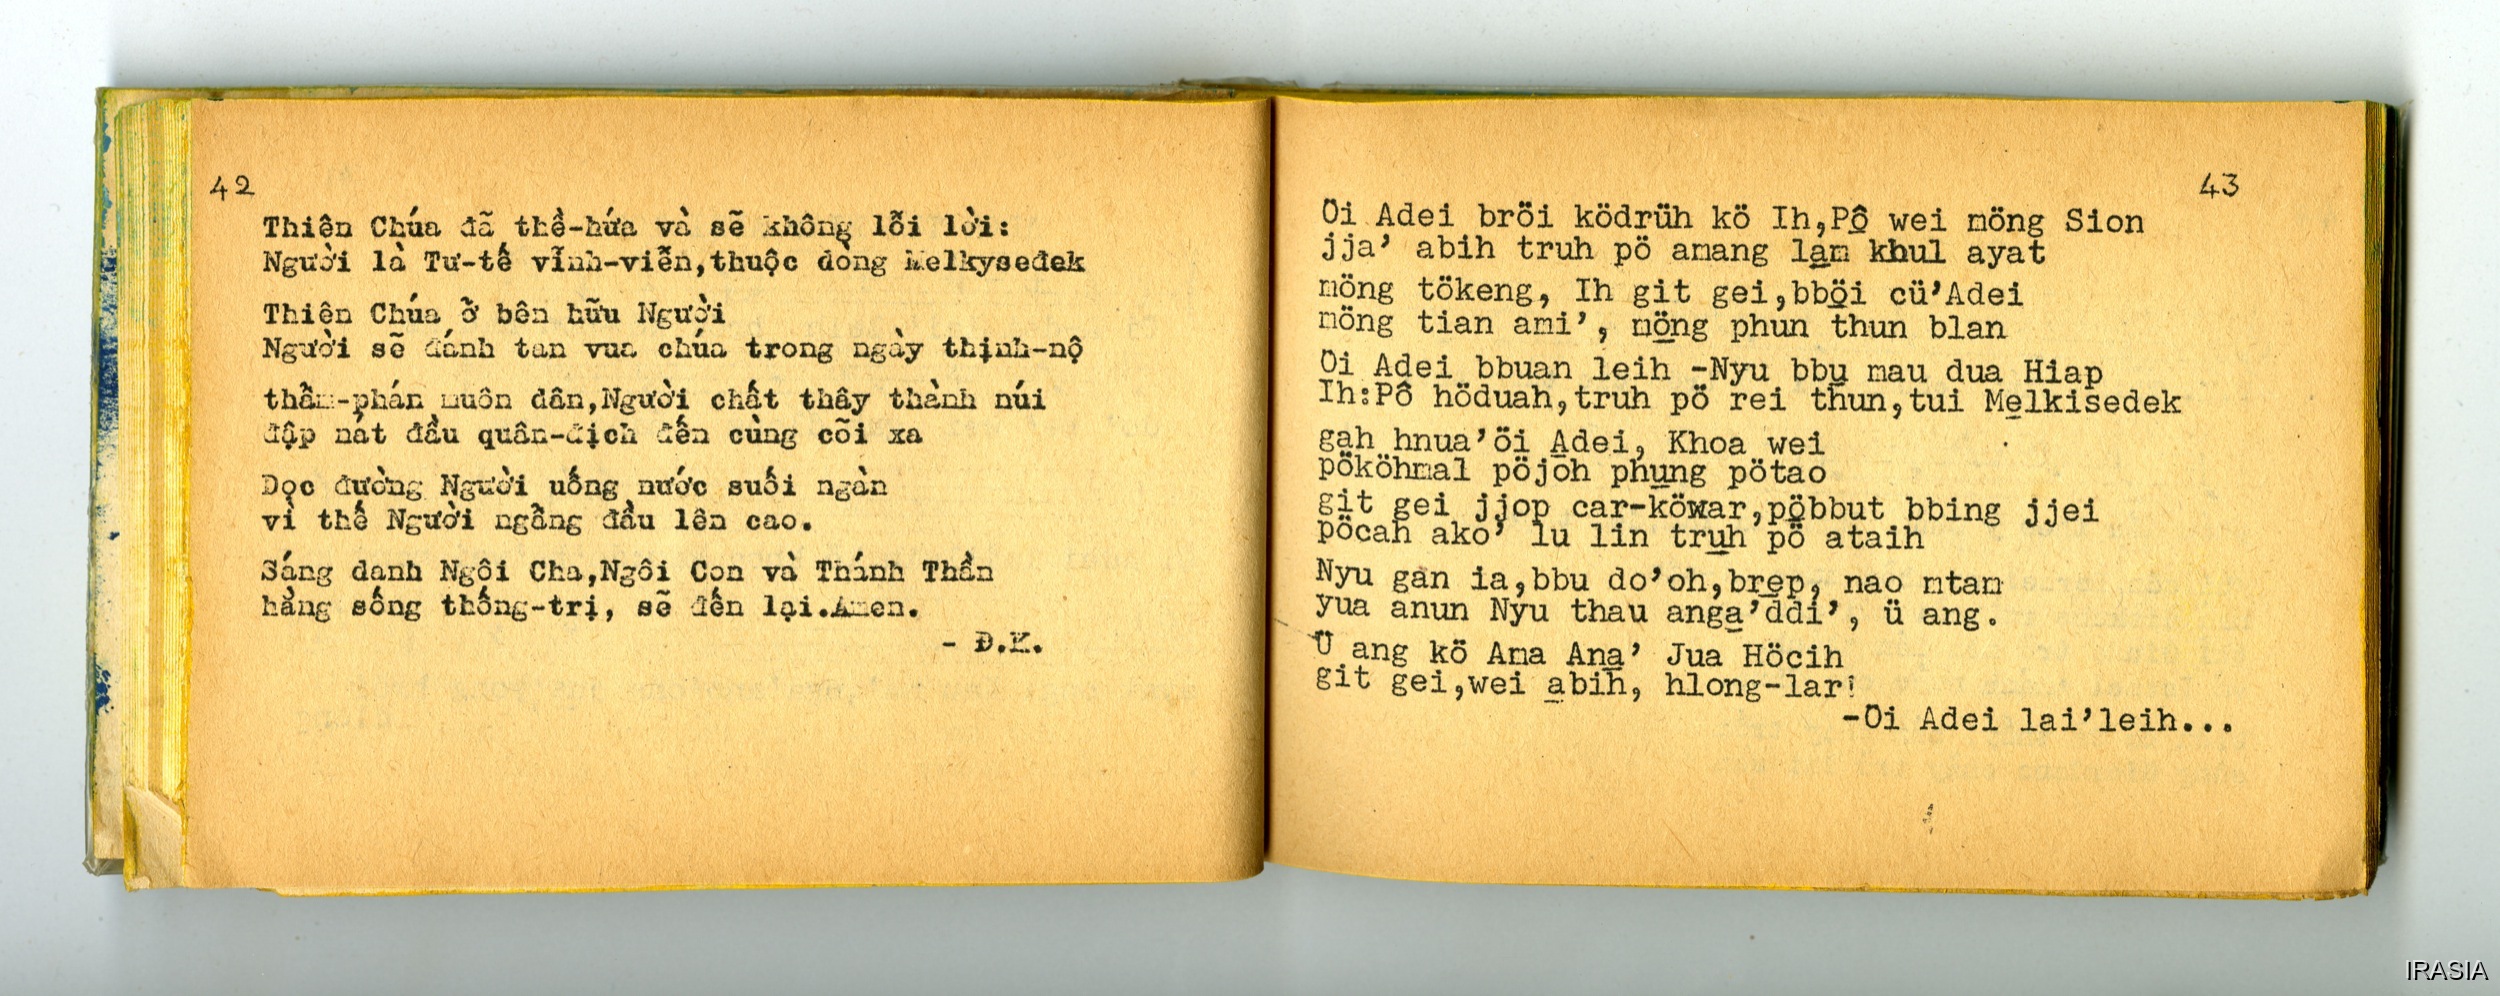 42
Thiên Chúa đã thề-hứa và sẽ không lỗi lời:
Người là Tư-tế vĩnh-viễn,thuộc dòng Melkysedek
Thiên Chúa ở bên hữu Người
Người sẽ đánh tan vua chúa trong ngày thịnh-nộ
thẩm-phán muôn dân,Người chất thây thành núi
đập nát đầu quân-địch đến cùng cõi xa
Dọc đường Người uống nước suối ngàn
vì thế Người ngẩng đầu lên cao.
Sáng danh Ngôi Cha,Ngôi Con và Thánh Thần
hằng sống thống-trị, sẽ đến lại.Amen.
- Đ.K.
43
Öi Adei bröi ködrüh kö Ih,Pô̲ wei möng Sion
jja’ abih truh pö amang la̲m khul ayat
möng tökeng, Ih git gei,bbö̲i cü’Adei
möng tian ami’, mö̲ng phun thun blan
Öi Adei bbuan leih -Nyu bbu̲ mau dua Hiap
Ih:Pô höduah,truh pö rei thun,tui Me̲lkisedek
gah hnua’öi A̲dei, Khoa wei
pököhmal pöjoh phu̲ng pötao
git gei jjop car-köwar,pö̲bbut bbing jjei
pöcah ako’ lu lin tru̲h pö ataih
Nyu gan ia,bbu do’oh,bre̲p, nao mtam
yua anun Nyu thau anga̲’ddi’, ü ang.
Ü ang kö Ama Ana̲’ Jua Höcih
git gei,wei a̲bih, hlong-lar!
-Öi Adei lai’leih...
IRASIA